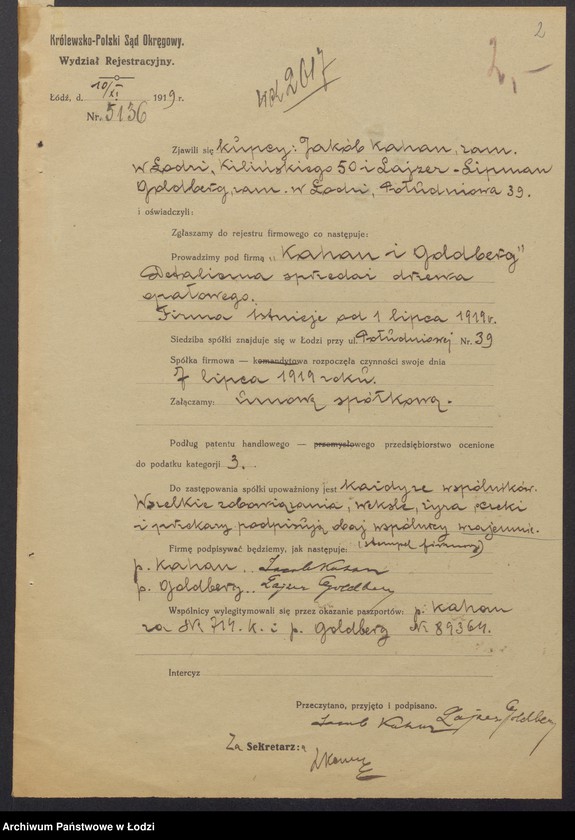 2
Królewsko-Polski Sąd Okręgowy.
Wydział Rejestracyjny.
2,—
Łódź, d. 10/XI 1919 r.
Nr. 5136
Zjawili się kupcy: Jakób Kahan, zam.
w Łodzi, Kilińskiego 50 i Lajzer-Lipman
Goldberg, zam. w Łodzi, Południowa 39.
i oświadczyli:
Zgłaszamy do rejestru firmowego co następuje:
Prowadzimy pod firmą „Kahan i Goldberg”
Detaliczna sprzedaż drzewa
opałowego.
Firma istnieje od 1 lipca 1919 r.
Siedziba spółki znajduje się w Łodzi przy ul. Południowej Nr. 39
Spółka firmowa — komandytowa rozpoczęła czynności swoje dnia
1 lipca 1919 roku.
Załączamy: umowę spółkową.
Podług patentu handlowego — przemysłowego przedsiębiorstwo ocenione
do podatku kategorji 3.
Do zastępowania spółki upoważniony jest każdy ze wspólników.
Wszelkie zobowiązania, weksle, żyra, czeki
i przekazy podpisują obaj wspólnicy wzajemnie.
Firmę podpisywać będziemy, jak następuje: (stempel firmowy)
p. Kahan .. Jacob Kahan
p. Goldberg .. Lajzer Goldberg
Wspólnicy wylegitymowali się przez okazanie paszportów: p. Kahan
za № 714. K. i p. Goldberg № 89364.
Intercyz
Przeczytano, przyjęto i podpisano.
Jacob Kahan Lajzer Goldberg
Za Sekretarz:a
Archiwum Państwowe w Łodzi